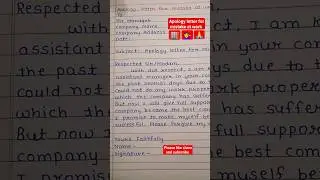 Apology letter for mistake at work
To,
The Manager
Company name
Company Address
Date:
Apology letter for
mistake at work
Subject: Apology letter for
Respected Sir/Madam,
With due respect, I am
assistant manager in your
the past several days due to
could not do any work
which the company has
But now I will give full
company become the best
I promise to make myself
Please forgive my
Yours Faithfully
Name -
Signature -
Please like share
and subscribe
Respected
assistant
the past
could not
But now
company
I am
in your
full
best
myself